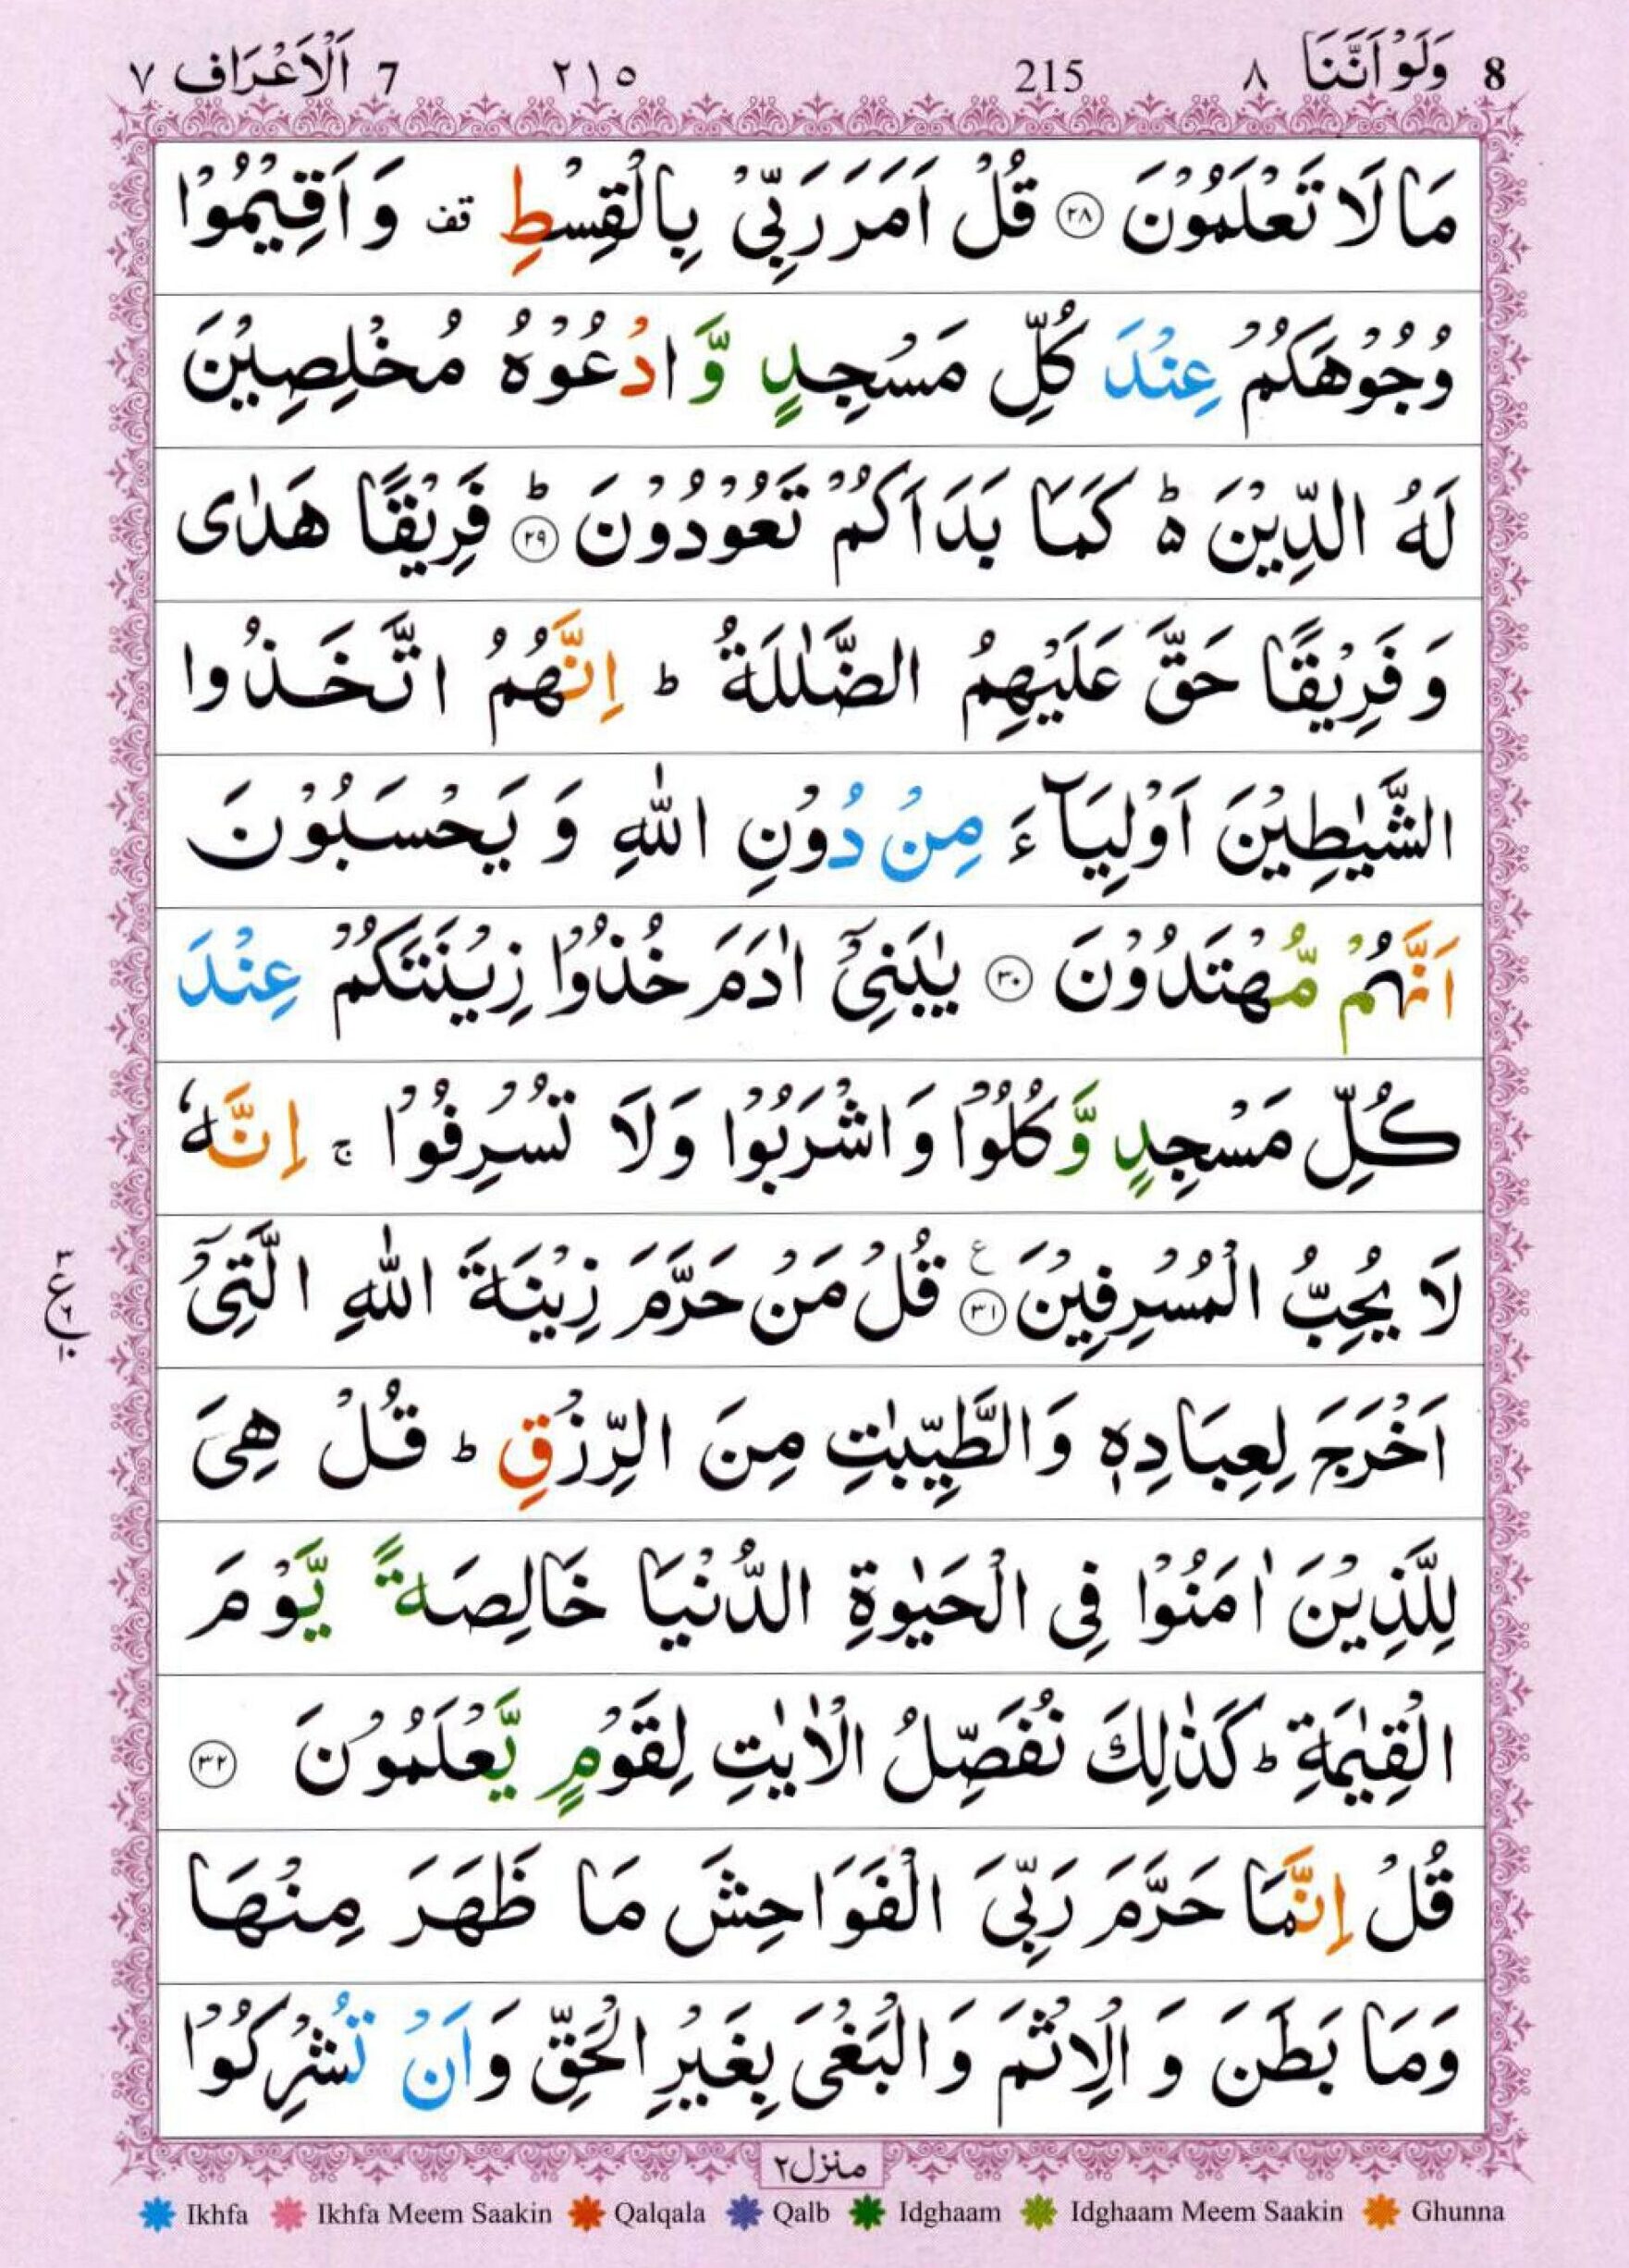 8 وَلَوْ اَنَّنَا ٨ 215 ٢١٥ 7 اَلْاَعْرَاف ٧
مَا لَا تَعْلَمُوْنَ ۝٢٨ قُلْ اَمَرَ رَبِّىْ بِالْقِسْطِ قف وَ اَقِيْمُوْا
وُجُوْهَكُمْ عِنْدَ كُلِّ مَسْجِدٍ وَّ ادْعُوْهُ مُخْلِصِيْنَ
لَهُ الدِّيْنَ ؕ۬ كَمَا بَدَاَكُمْ تَعُوْدُوْنَ ؕ۝٢٩ فَرِيْقًا هَدٰى
وَ فَرِيْقًا حَقَّ عَلَيْهِمُ الضَّلٰلَةُ ؕ اِنَّهُمُ اتَّخَذُوا
الشَّيٰطِيْنَ اَوْلِيَآءَ مِنْ دُوْنِ اللّٰهِ وَ يَحْسَبُوْنَ
اَنَّهُمْ مُّهْتَدُوْنَ ۝٣٠ يٰبَنِىْٓ اٰدَمَ خُذُوْا زِيْنَتَكُمْ عِنْدَ
كُلِّ مَسْجِدٍ وَّ كُلُوْا وَ اشْرَبُوْا وَلَا تُسْرِفُوْا ۚ اِنَّهٗ
لَا يُحِبُّ الْمُسْرِفِيْنَ ۝٣١ ع قُلْ مَنْ حَرَّمَ زِيْنَةَ اللّٰهِ الَّتِىْٓ
٣ ع ٦ ١٠
اَخْرَجَ لِعِبَادِهٖ وَالطَّيِّبٰتِ مِنَ الرِّزْقِ ؕ قُلْ هِىَ
لِلَّذِيْنَ اٰمَنُوْا فِى الْحَيٰوةِ الدُّنْيَا خَالِصَةً يَّوْمَ
الْقِيٰمَةِ ؕ كَذٰلِكَ نُفَصِّلُ الْاٰيٰتِ لِقَوْمٍ يَّعْلَمُوْنَ ۝٣٢
قُلْ اِنَّمَا حَرَّمَ رَبِّىَ الْفَوَاحِشَ مَا ظَهَرَ مِنْهَا
وَمَا بَطَنَ وَ الْاِثْمَ وَ الْبَغْىَ بِغَيْرِ الْحَقِّ وَ اَنْ تُشْرِكُوْا
منزل٢
Ikhfa Ikhfa Meem Saakin Qalqala Qalb Idghaam Idghaam Meem Saakin Ghunna